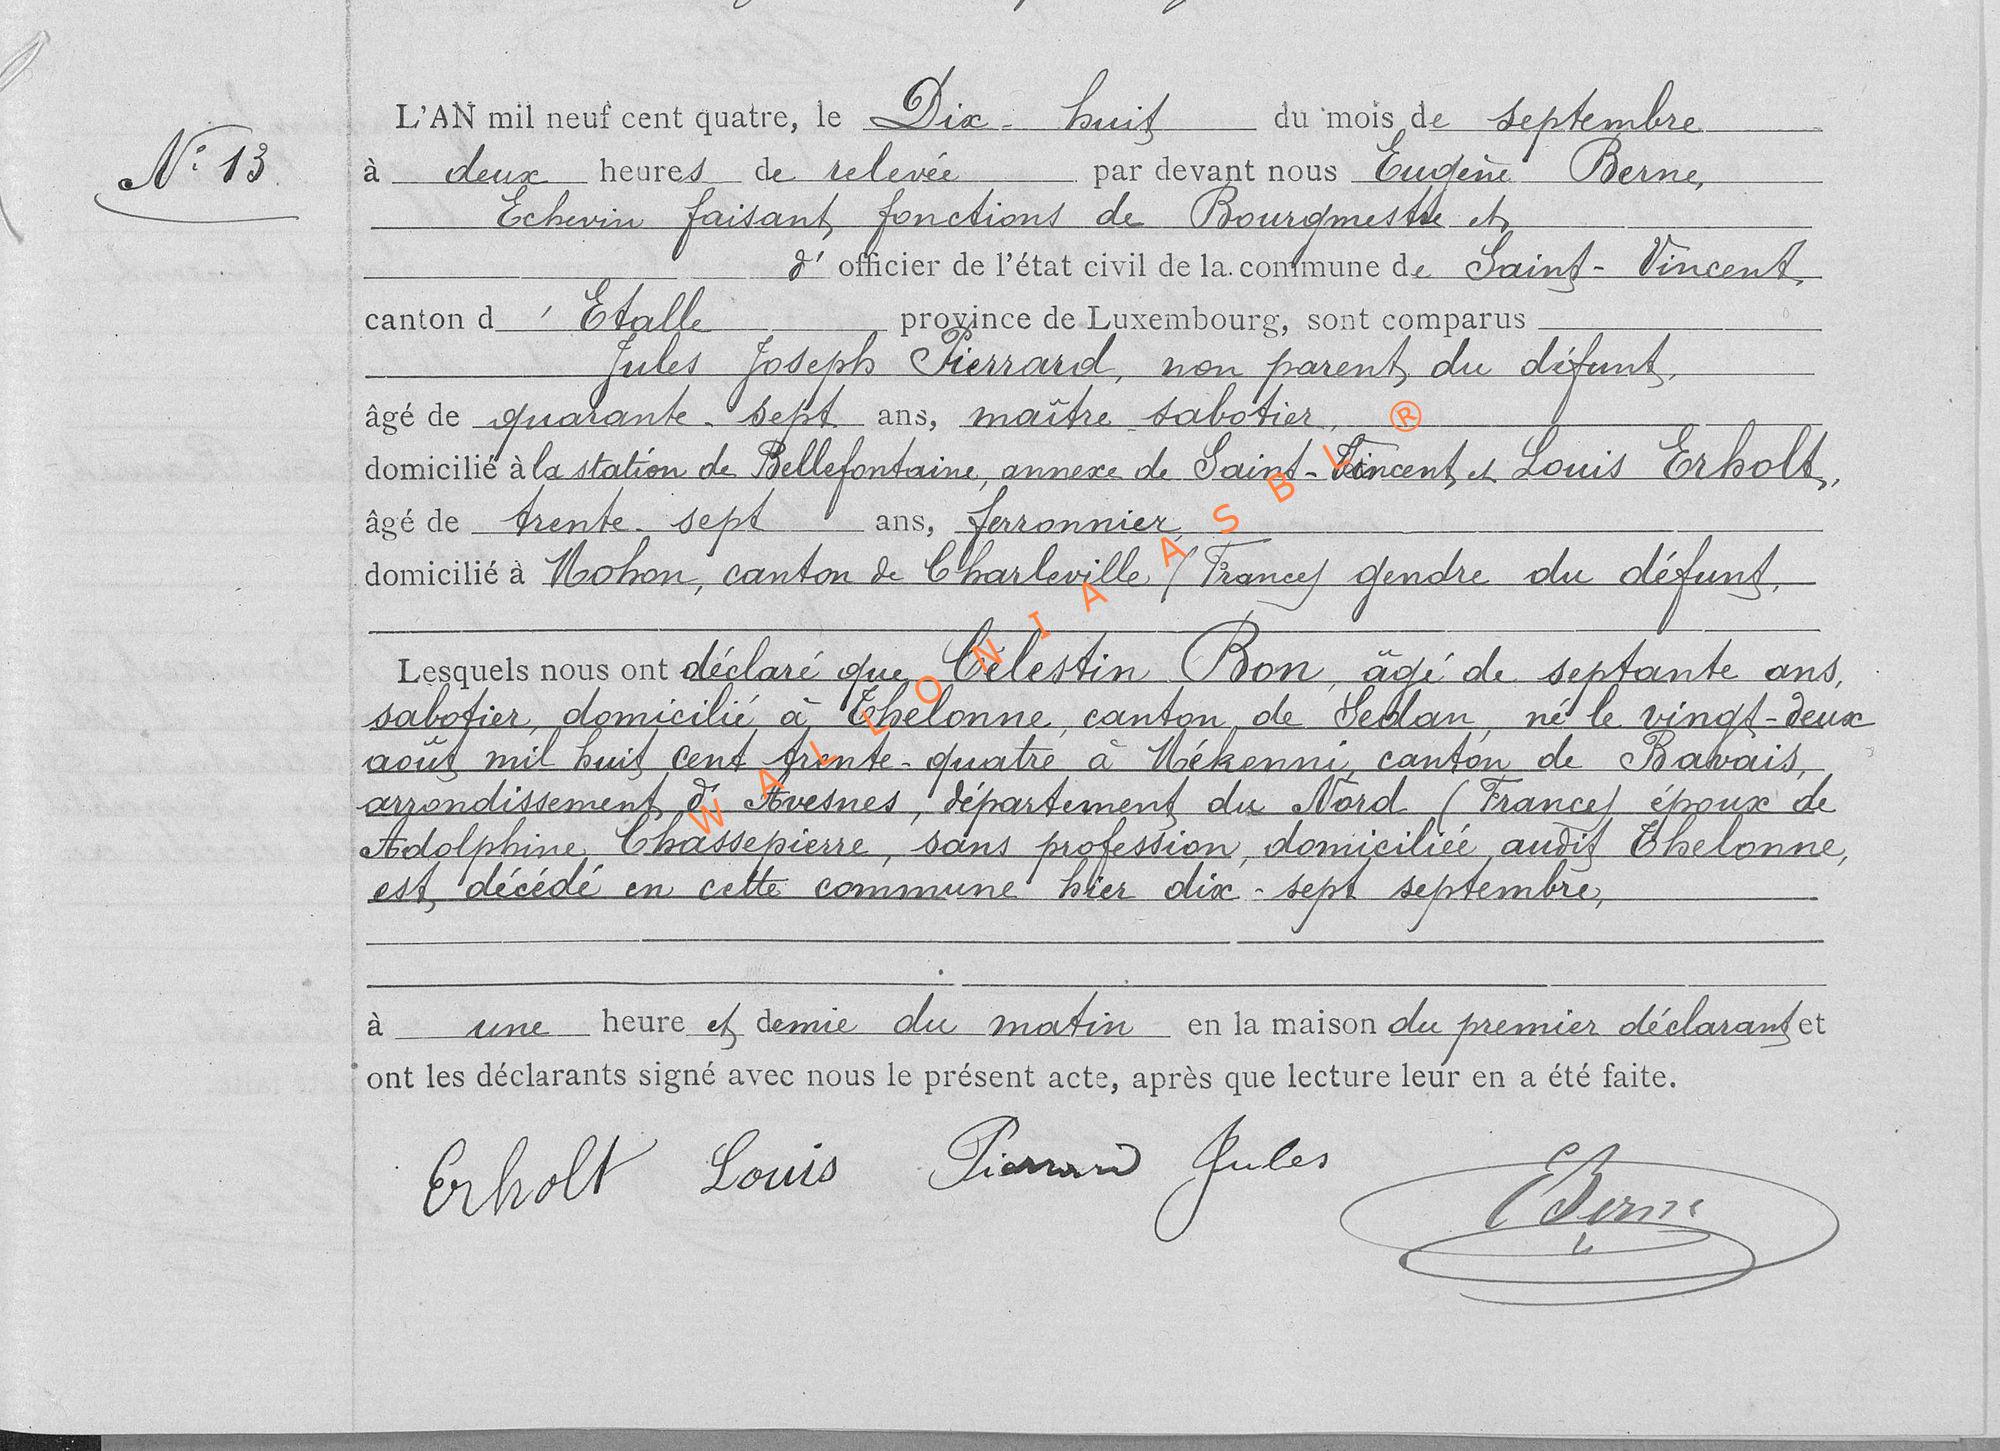 N° 13
L'AN mil neuf cent quatre, le Dix-huit du mois de septembre
à deux heures de relevée par devant nous Eugène Berne,
Echevin faisant fonctions de Bourgmestre et
d' officier de l'état civil de la commune de Saint-Vincent,
canton d'Etalle province de Luxembourg, sont comparus
Jules Joseph Pierrard, non parent du défunt,
âgé de quarante-sept ans, maître sabotier,
domicilié à la station de Bellefontaine, annexe de Saint-Vincent, et Louis Erholt,
âgé de trente-sept ans, ferronnier,
domicilié à Mohon, canton de Charleville (France) gendre du défunt,
Lesquels nous ont déclaré que Célestin Bon, âgé de septante ans,
sabotier, domicilié à Thelonne, canton de Sedan, né le vingt-deux
août mil huit cent trente-quatre à Mékenni, canton de Bavais,
arrondissement d'Avesnes, département du Nord (France) époux de
Adolphine Chassepierre, sans profession, domiciliée audit Thelonne,
est décédé en cette commune hier dix-sept septembre,
à une heure et demie du matin en la maison du premier déclarant et
ont les déclarants signé avec nous le présent acte, après que lecture leur en a été faite.
Erholt Louis Pierrard Jules EBerne
WALLONIA ASBL ®